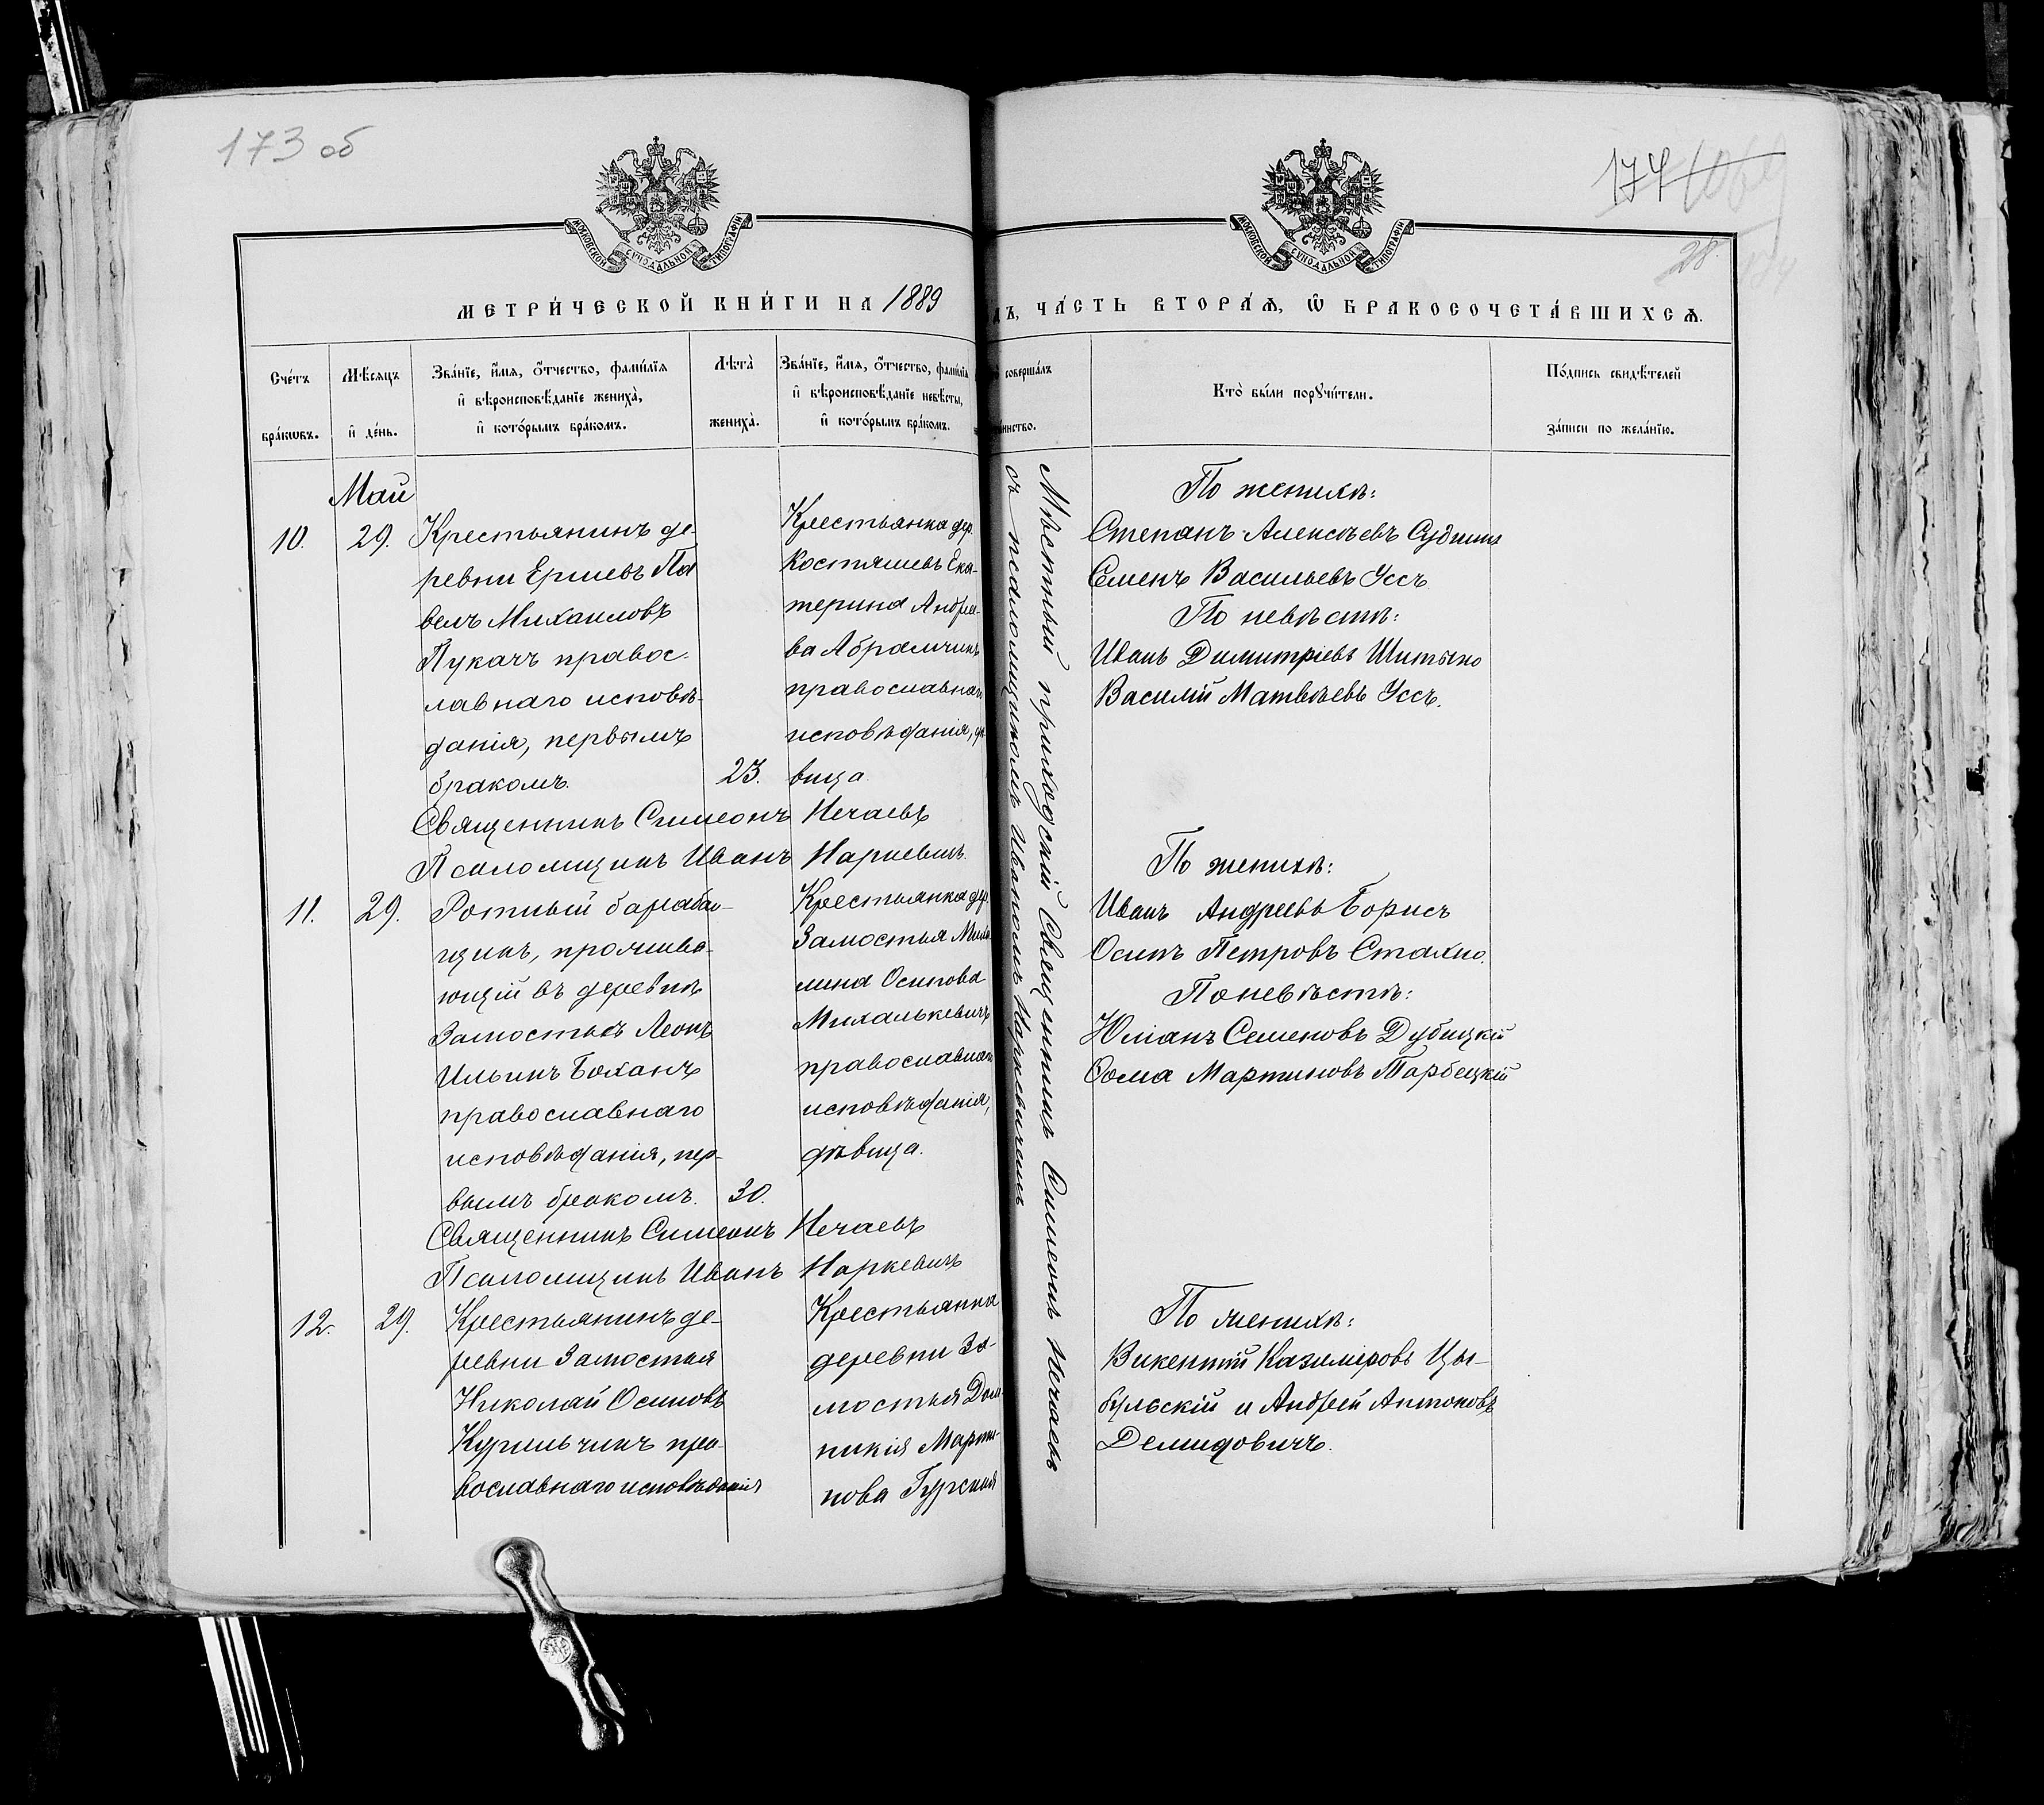 173 об
174
28.
МОСКОВСКОЙ СѴНОДАЛЬНОЙ ТИПОГРАФІИ
МОСКОВСКОЙ СѴНОДАЛЬНОЙ ТИПОГРАФІИ
МЕТРИ́ЧЕСКОЙ КНИ́ГИ НА 1889
ДЪ, ЧА́СТЬ ВТОРА́Я, Ѽ БРАКОСОЧЕТА́ВШИХСЯ.
Сче́тъ
бра́кѡвъ.
Мѣ́сяцъ
и҆ де́нь.
Зва́нїе, и҆́мя, ѻ҆́тчество, фами́лїя
и҆ вѣроисповѣ́данїе жениха̀,
и҆ кото́рымъ бра́комъ.
Лѣта̀
жениха̀.
Зва́нїе, и҆́мя, ѻ҆́тчество, фами́лїя
и҆ вѣроисповѣ́данїе невѣ́сты,
и҆ кото́рымъ бра́комъ.
соверша́лъ
инство.
Кто̀ бы́ли порꙋчи́тели.
По́дпись свидѣ́телей
за́писи по жела́нїю.
Май
10.
29.
Крестьянинъ де-
ревни Ершевъ Па
велъ Михаиловъ
Пукачъ правос-
лавнаго исповѣ-
данія, первымъ
бракомъ.
23.
Крестьянка дер.
Костяшевъ Ека-
терина Андрее-
ва Абрамчикъ
православнаго
исповѣданія, дѣ-
вица.
Священникъ Симеонъ Нечаевъ
Псаломщикъ Иванъ Наркевичъ.
По женихѣ:
Степанъ Алексѣевъ
Семенъ Васильевъ Уссъ.
По невѣстѣ:
Иванъ Димитріевъ Шитыко
Василій Матвѣевъ Уссъ.
Мѣстный приходскій Священникъ Симеонъ Нечаевъ
съ псаломщикомъ Иваномъ Наркевичемъ
11.
29.
Ротный барабан-
щикъ, прожива-
ющій въ деревнѣ
Замостьѣ Леонъ
Ильинъ Боханъ
православнаго
исповѣданія, пер-
вымъ бракомъ.
30.
Крестьянка дер.
Замостья Миха-
лина Осипова
Михалькевичъ
православнаго
исповѣданія,
дѣвица.
Священникъ Симеонъ Нечаевъ
Псаломщикъ Иванъ Наркевичъ
По женихѣ:
Иванъ Андреевъ Борисъ
Осипъ Петровъ Стахно.
По невѣстѣ:
Юліанъ Семеновъ Дубицкій
Ѳома Мартиновъ Тарбецкій
12.
29.
Крестьянинъ де-
ревни Замостья
Николай Осиповъ
Курильчикъ пра-
вославнаго исповѣданія
Крестьянка
деревни За-
мостья Дом
никія Марти-
нова Гурская
По женихѣ:
Викентій Казиміровъ Цы-
бульскій и Андрей Антоновъ
Демидовичъ.